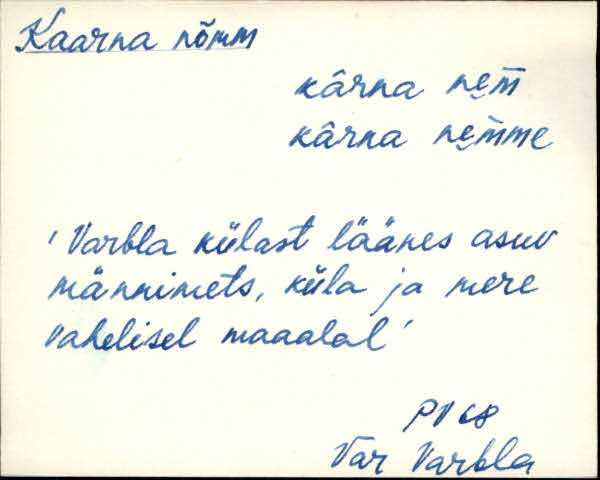 Kaarna nõmm
kârna ne̮m̄
kârna ne̮m̄me
'Varbla külast läänes asuv
männimets, küla ja mere
vahelisel maaalal'
PV 68
Var Varbla